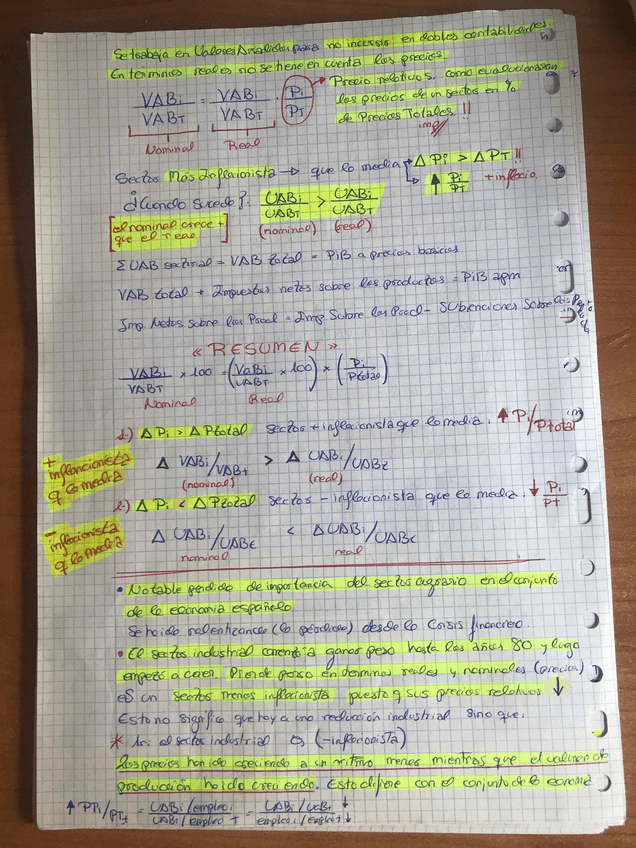 Se trabaja en Valores Añadidos para no incurrir en dobles contabilidades.
En términos reales no se tiene en cuenta los precios
VABi/VABT = VABi/VABT · Pi/PT → Precio relativos, como evolucionaran
los precios de un sector en %
de Precios Totales. !!
Nominal Real imp
Sector Más Inflacionista → que la media → Δ Pi > Δ PT !!
¿Cuando sucede?. UABi/UABT > UABi/UABT → ↑ Pi/PT + inflacio
[el nominal crece + que el real] (nominal) (real)
Σ UAB sectorial = VAB total = PiB a precios basicos
VAB total + Impuestos netos sobre los productos = PiB apm
Imp Netos sobre los Prod = Imp Sobre los Prod - SUbvenciones Sobre los
« RESUMEN »
VABi/VABT × 100 = (VaBi/UABT × 100) × (Pi/Ptotal)
Nominal Real
1.) Δ Pi > Δ Ptotal sector + inflacionista que la media. ↑ Pi/Ptotal
+ inflancionista q la media
Δ VABi/VABT > Δ UABi/UABt
(nominal) (real)
2.) Δ Pi < Δ Ptotal sector - inflacionista que la media. ↓ Pi/Pt
- inflacionista q la media
Δ UABi/UABt < Δ UABi/UABt
nominal real
• Notable perdida de importancia del sector agrario en el conjunto
de la economia española
Se ha ido ralentizando (la pérdida) desde la Crisis financiera.
• El sector industrial comentía ganar peso hasta los años 80 y luego
empezó a caer. Pierde peso en terminos reales y nominales (precios)
es un sector menos inflacionista puesto q sus precios relativos ↓
Esto no significa que haya una reducción industrial sino que:
* el sector industrial es (-inflacionista)
los precios han ido creciendo a un ritmo menor mientras que el volumen de
producción ha ido creciendo. Esto difiere con el conjunto de la econom
↑ PTi/PTt = UABi/empleo i / UABt/empleo T = UABi/UABt ↓ / empleo i/emplot ↓